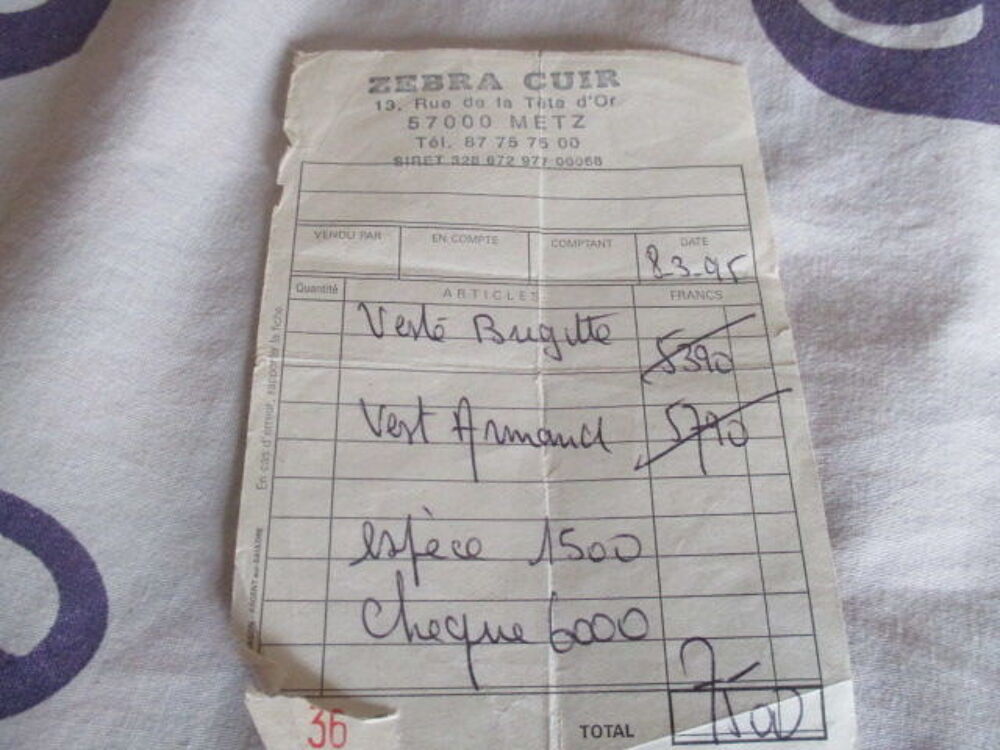 ZEBRA CUIR
13, Rue de la Tête d'Or
57000 METZ
Tél. 87 75 75 00
SIRET 328 672 977 00068
VENDU PAR EN COMPTE COMPTANT DATE
8-3-95
Quantité ARTICLES FRANCS
Veste Brigitte 5390
Vest Armand 5790
espèce 1500
Cheque 6000
En cas d'erreur, rapporter la fiche
36 TOTAL 7500